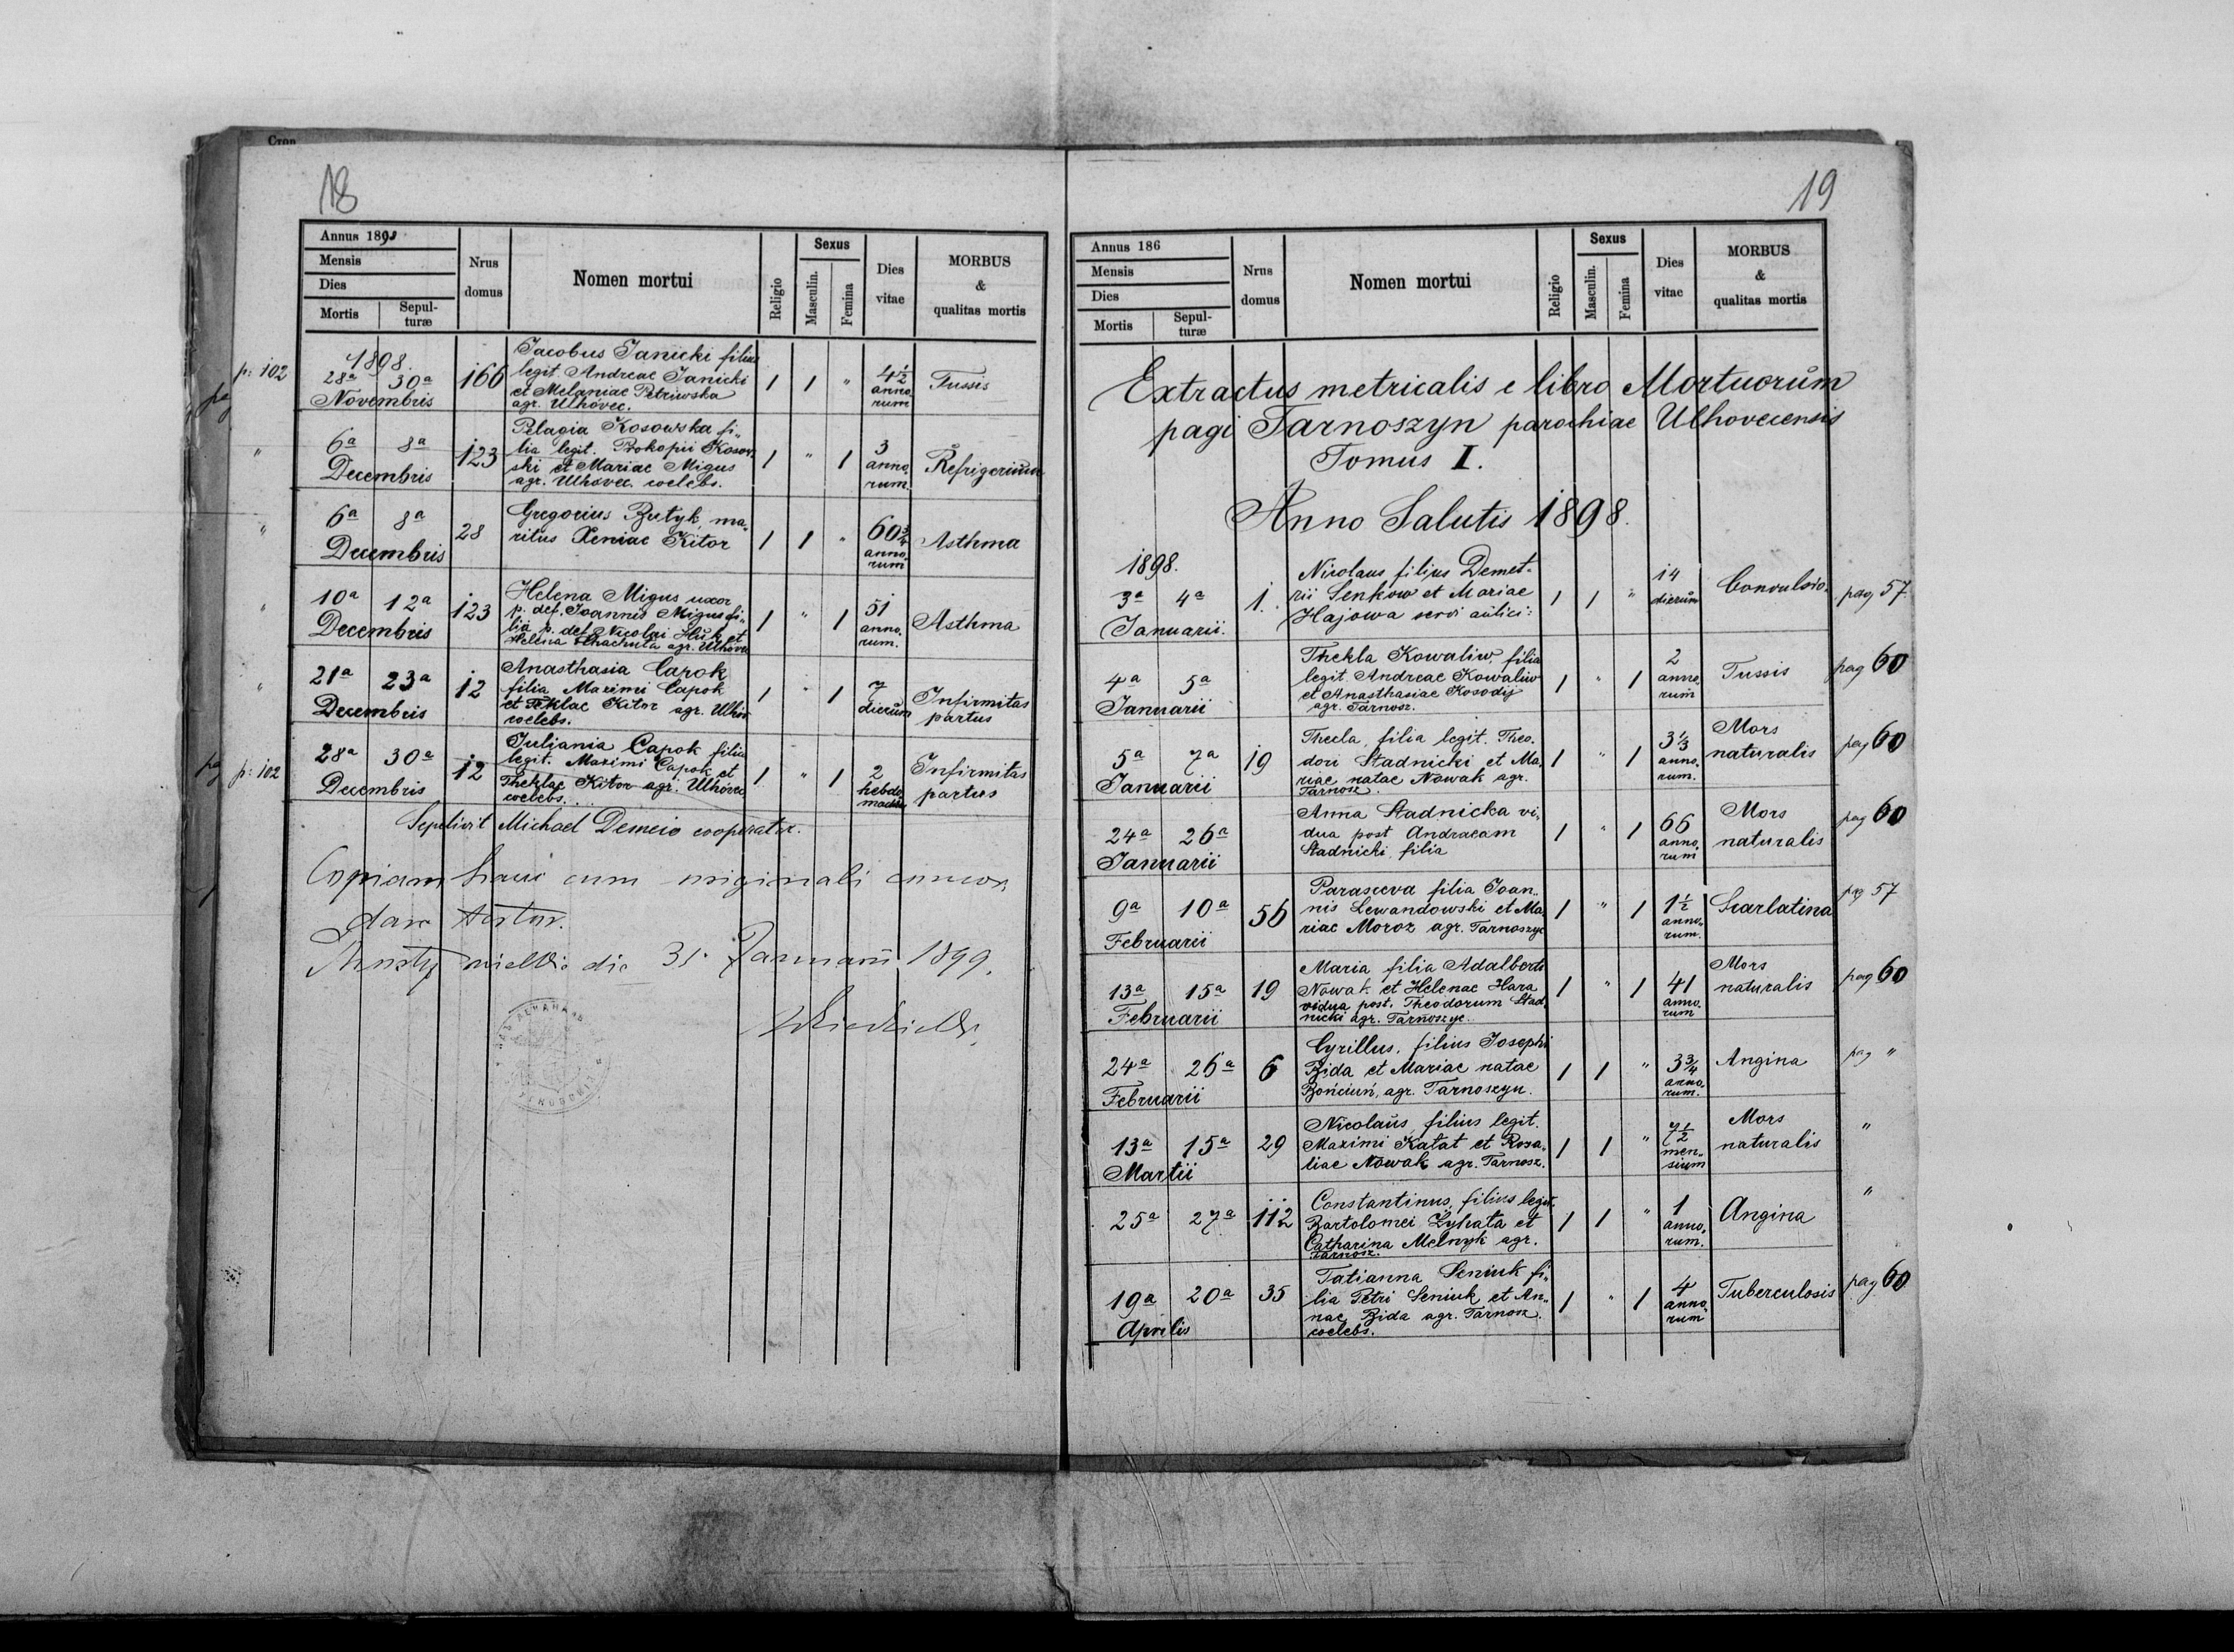 Стор
18
Annus 1898
Mensis
Dies
Mortis
Sepul-
turæ
Nrus
domus
Nomen mortui
Religio
Sexus
Masculin.
Femina
Dies
vitae
MORBUS
&
qualitas mortis
p: 102
1898.
28a 30a
Novembris
166
Jacobus Janicki filius
legit Andreae Janicki
et Melaniae Petriwska
agr. Ulhovec.
1 1 "
4 1/2
anno,
rum
Tussis
"
6a 8a
Decembris
123
Pelagia Kosowska fi„
lia legit. Prokopii Kosow
ski et Mariae Migus
agr. Ulhovec. coelebs.
1 " 1
3
anno,
rum.
Refrigerium
"
6a 8a
Decembris
28
Gregorius Butyk, ma„
ritus Xeniae Kitor
1 1 "
60 3/4
anno„
rum
Asthma
"
10a 12a
Decembris
123
Helena Migus uxor
p. def. Joannis Migus fi„
lia p. def. Nicolai Huk et
Helena agr. Ulhove
1 " 1
51
anno,
rum.
Asthma
"
21a 23a
Decembris
12
Anasthasia Capok
filia Maximi Capok
et Teklae Kitor agr. Ulhov
coelebs.
1 " 1
7
dierum
Infirmitas
partus
p: 102
28a 30a
Decembris
12
Juliania Capok filia
legit. Maximi Capok et
Theklae Kitor agr. Ulhovec
coelebs.
1 " 1
2
hebdo
madum
Infirmitas
partus
Sepelivit Michael Demcio cooperator.
Copiam hanc cum originali concor
dare testor.
die 31. Januarii 1899.
19
Annus 186
Mensis
Dies
Mortis
Sepul-
turæ
Nrus
domus
Nomen mortui
Religio
Sexus
Masculin.
Femina
Dies
vitae
MORBUS
&
qualitas mortis
Extractus metricalis e libro Mortuorum
pagi Tarnoszyn parochiae Ulhovecensis
Tomus I.
Anno Salutis 1898.
1898.
3a 4a
Januarii.
1.
Nicolaus filius Demet„
rii Senkow et Mariae
Hajowa servi aulici:
1 1 "
14
dierum
Convulsio.
pag 57
4a 5a
Januarii
Thekla Kowaliw, filia
legit. Andreae Kowaliw
et Anasthasiae Kosodij
agr. Tarnosz.
1 " 1
2
anno,
rum
Tussis
pag 60
5a 7a
Januarii
19
Thecla, filia legit. Theo„
dori Stadnicki et Ma,
riae natae Nowak agr.
Tarnosz.
1 " 1
3 1/3
anno,
rum.
Mors
naturalis
pag 60
24a 26a
Januarii
Anna Stadnicka vi„
dua post Andraeam
Stadnicki, filia
1 " 1
66
anno,
rum
Mors
naturalis
pag 60
9a 10a
Februarii
56
Parasceva filia Joan„
nis Lewandowski et Ma,
riae Moroz agr. Tarnoszyc
1 " 1
1 1/2
anno„
rum.
Scarlatina
pag 57
13a 15a
Februarii
19
Maria filia Adalberti
Nowak et Helenae Hara
vidua post. Theodorum Stad„
nicki agr. Tarnoszyc.
1 " 1
41
anno.
rum
Mors
naturalis
pag 60
24a 26a
Februarii
6
Cyrillus, filius Josephi
Bida et Mariae natae
Bońciuń, agr. Tarnoszyn.
1 1 "
3 3/4
anno,
rum.
Angina
pag "
13a 15a
Martii
29
Nicolaus, filius legit.
Maximi Katat et Rosa„
liae Nowak agr. Tarnosz.
1 1 "
7 1/2
men„
sium
Mors
naturalis
"
25a 27a
112
Constantinus, filius legit.
Bartolomei Zyhata et
Catharina Melnyk agr.
Tarnosz.
1 1 "
1
anno,
rum.
Angina
"
19a 20a
Aprilis
35
Tatianna Seniuk fi„
lia Petri Seniuk et An„
nae Bida agr. Tarnosz.
coelebs.
1 " 1
4
anno,
rum
Tuberculosis
pag 60